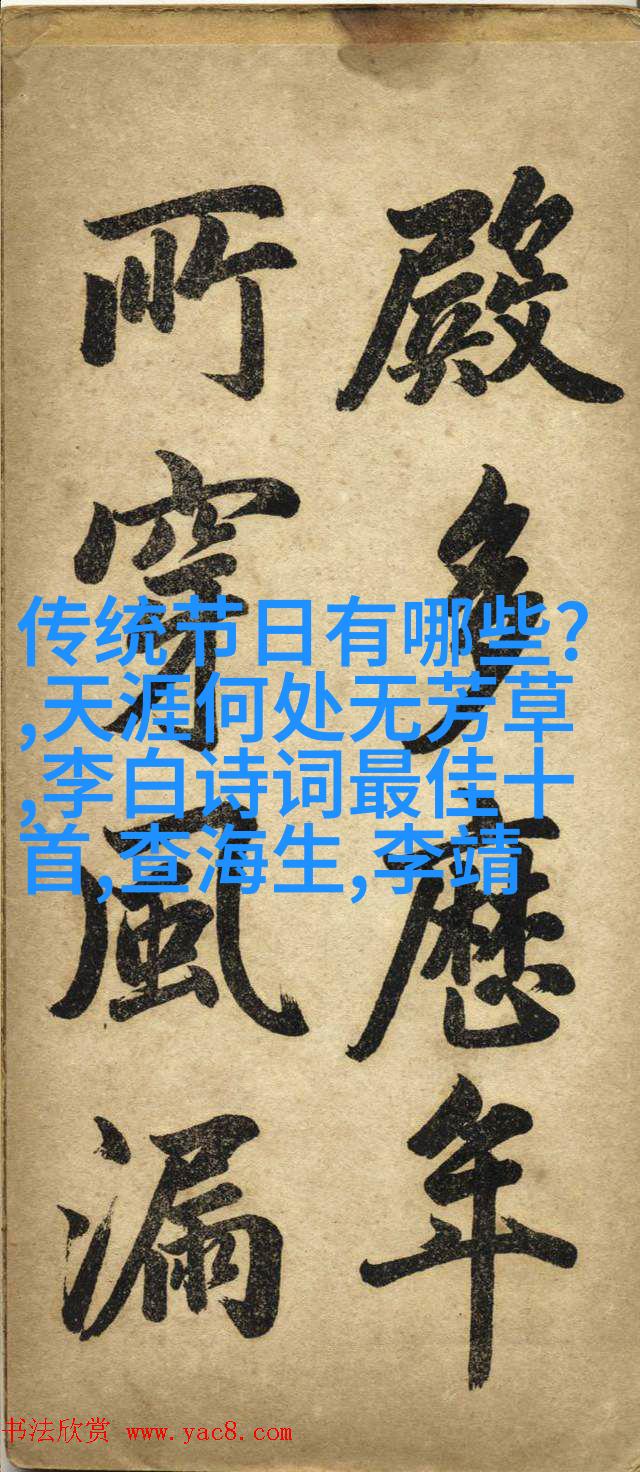 殿多歷年
所穿風漏
传统节日有哪些?
,天涯何处无芳草
,李白诗词最佳十
首,查海生,李靖
书法欣赏 www.yac8.com